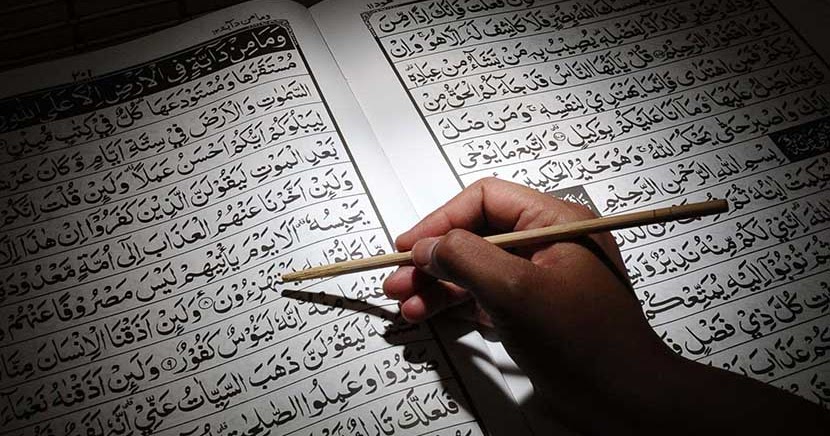 فَعَلْتَ فَإِنَّكَ إِذًا مِّنَ
اللّٰهُ بِضُرٍّ فَلَا كَاشِفَ لَهُ إِلَّا هُوَ وَإِنْ
لِفَضْلِهِ يُصِيبُ بِهِ مَنْ يَشَاءُ مِنْ عِبَادِهِ
الرَّحِيمُ قُلْ يٰأَيُّهَا النَّاسُ قَدْ جَاءَكُمُ الْحَقُّ مِنْ
فَمَنِ اهْتَدٰى فَإِنَّمَا يَهْتَدِي لِنَفْسِهِ وَمَنْ ضَلَّ
يَضِلُّ عَلَيْهَا وَمَا أَنَا عَلَيْكُمْ بِوَكِيلٍ وَاتَّبِعْ مَا يُوحٰى
وَاصْبِرْ حَتّٰى يَحْكُمَ اللّٰهُ وَهُوَ خَيْرُ الْحٰكِمِينَ
بِسْمِ اللّٰهِ الرَّحْمٰنِ الرَّحِيمِ
اللّٰهَ إِنَّنِي لَكُمْ مِنْهُ نَذِيرٌ
تُوبُوا إِلَيْهِ يُمَتِّعْكُمْ
كُلَّ ذِي فَضْلٍ
عَذَابَ
وما من دآبة ١٢
٢٠١
وَمَا مِنْ دَابَّةٍ فِي الْأَرْضِ إِلَّا عَلَى اللّٰهِ
مُسْتَقَرَّهَا وَمُسْتَوْدَعَهَا كُلٌّ فِي كِتٰبٍ مُبِينٍ
السَّمٰوٰتِ وَالْأَرْضَ فِي سِتَّةِ أَيَّامٍ وَكَانَ
لِيَبْلُوَكُمْ أَيُّكُمْ أَحْسَنُ عَمَلًا وَلَئِنْ قُلْتَ إِنَّكُمْ
بَعْدِ الْمَوْتِ لَيَقُولَنَّ الَّذِينَ كَفَرُوا إِنْ هٰذَا إِلَّا
وَلَئِنْ أَخَّرْنَا عَنْهُمُ الْعَذَابَ إِلٰى أُمَّةٍ مَعْدُودَةٍ
يَحْبِسُهُ أَلَا يَوْمَ يَأْتِيهِمْ لَيْسَ مَصْرُوفًا عَنْهُمْ
مَا كَانُوا يَسْتَهْزِءُونَ ٨ وَلَئِنْ أَذَقْنَا الْإِنْسَانَ مِنَّا
مِنْهُ إِنَّهُ لَيَئُوسٌ كَفُورٌ ٩ وَلَئِنْ أَذَقْنٰهُ نَعْمَاءَ
لَيَقُولَنَّ ذَهَبَ السَّيِّاٰتُ عَنِّي إِنَّهُ لَفَرِحٌ
صَبَرُوا وَعَمِلُوا الصّٰلِحٰتِ
فَلَعَلَّكَ تَارِكٌ